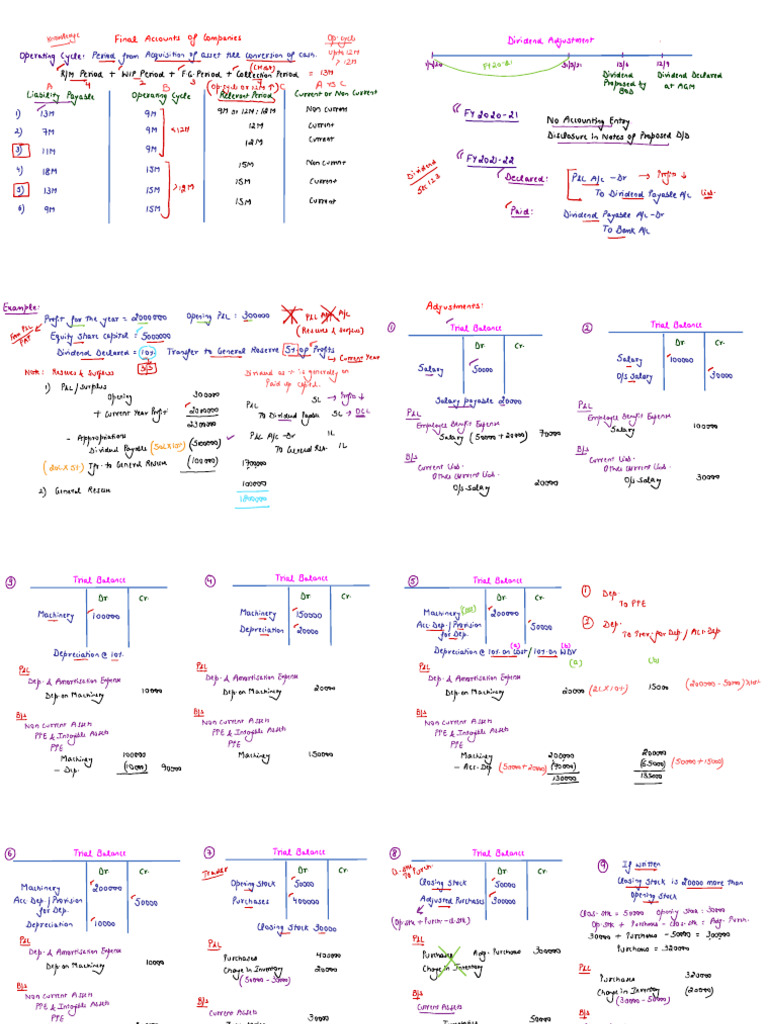 Knowledge
Final Accounts of Companies
Op. cycle
upto 12M
> 12M
Operating Cycle: Period from Acquisition of asset till conversion of cash.
(CM&S)
R/M Period + WIP Period + F.G. Period + Collection Period = 13M
A 4 B 2 3 4 C A vs C
Liability Payable Operating Cycle Relevant Period Current or Non Current
1) 13M 9M 9M or 12M : 12M Non Current
2) 7M 9M 12M Current
3) 11M 9M 12M Current
<12M
4) 18M 15M 15M Non Current
5) 13M 15M 15M Current
6) 9M 15M 15M Current
>12M
Dividend Adjustment
1/4/20 FY 20-21 31/3/21 13/6 12/9
Dividend Proposed by BOD
Dividend Declared at AGM
FY 2020-21
No Accounting Entry
Disclosure in Notes of Proposed D/D
FY 2021-22
Dividend
Sec 123
Declared: P&L A/c - Dr → Profits ↓
To Dividend Payable A/c Liab.
Paid: Dividend Payable A/c - Dr
To Bank A/c
Example:
Profit for the year = 2000000 Opening P&L : 300000
P&L App A/c
(Reserves & Surplus)
Equity share capital = 5000000
Dividend Declared = 10% Transfer to General Reserve 5% of Profits
→ Current Year
Note: Reserves & Surplus
Dividend is generally on Paid up capital.
1) P&L / Surplus
Opening 300000
+ Current Year Profit 2000000
2300000
- Appropriations
Dividend Payable (50L×10%) (500000)
(20L×5%) Tfr. to General Reserve (100000) 1700000
2) General Reserve 100000
1800000
P&L 5L → Profits ↓
To Dividend Payable 5L → OCL
P&L A/c - Dr 1L
To General Res. 1L
Adjustments:
① Trial Balance
Dr Cr.
Salary 50000
Salary payable 20000
P&L
Employee Benefit Expense
Salary (50000 + 20000) 70000
B/s
Current Liab.
Other Current Liab.
O/s Salary 20000
② Trial Balance
Dr Cr.
Salary 100000
O/s Salary 30000
P&L
Employee Benefit Expense
Salary 100000
B/s
Current Liab
Other Current Liab.
O/s Salary 30000
③ Trial Balance
Dr Cr.
Machinery 100000
Depreciation @ 10%
P&L
Dep. & Amortisation Expense
Dep. on Machinery 10000
B/s
Non Current Assets
PPE & Intangible Assets
PPE
Machinery 100000
- Dep. (10000) 90000
④ Trial Balance
Dr Cr.
Machinery 150000
Depreciation 20000
P&L
Dep. & Amortisation Expense
Dep. on Machinery 20000
B/s
Non Current Assets
PPE & Intangible Assets
PPE
Machinery 150000
⑤ Trial Balance
Dr Cr.
Machinery 200000
Acc. Dep. / Provision for Dep. 50000
Depreciation @ 10% on Cost / 10% on WDV
(a) (b)
① Dep.
To PPE
② Dep.
To Prov. for Dep. / Acc. Dep
P&L
Dep. & Amortisation Expense
Dep. on Machinery 20000 (2L×10%) 15000 (200000 - 50000)×10%
B/s
Non Current Assets
PPE & Intangible Assets
PPE
Machinery 200000 200000
- Acc. Dep. (50000 + 20000) (70000) (65000) (50000 + 15000)
130000 135000
⑥ Trial Balance
Dr Cr.
Machinery 200000
Acc Dep. / Provision for Dep. 50000
Depreciation 10000
P&L
Dep. & Amortisation Expense
Dep. on Machinery 10000
B/s
Non Current Assets
PPE & Intangible Assets
PPE
⑦ Trial Balance
Trader
Dr Cr.
Opening Stock 50000
Purchases 400000
Closing Stock 30000
P&L
Purchases 400000
Change in Inventory 20000
(50000 - 30000)
B/s
Current Assets
⑧ Trial Balance
Cl. Stk
To Purch.
Dr Cr.
Closing Stock 50000
Adjusted Purchases 300000
(Op. Stk + Purch - Cl. Stk)
P&L
Purchases Adj. Purchases 300000
Change in Inventory
B/s
Current Assets
Inventories 50000
⑨ If written
Closing Stock is 20000 more than Opening Stock
Clos. Stk = 50000 Opening Stock : 30000
Op. Stk + Purchase - Clos. Stk = Adj. Purch.
30000 + Purchase - 50000 = 300000
Purchase = 320000
P&L
Purchases 320000
Change in Inventory (20000)
(30000 - 50000)
B/s
Current Assets